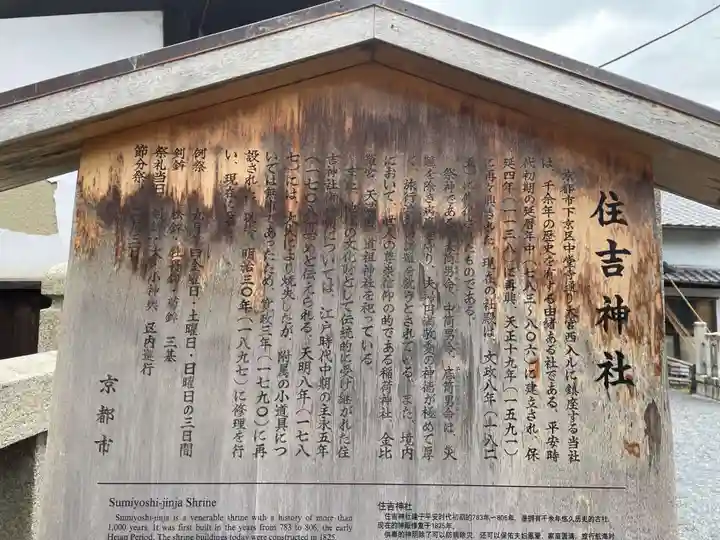 住吉神社
京都市下京区中堂寺通り大宮西入ルに鎮座する当社
は、千余年の歴史を有する由緒ある社である。平安時
代初期の延暦年中(七八三〜八〇六)に建立され、保
延四年(一一三八)に再興、天正十九年(一五九一)
に再々興された。現在の社殿は、文政八年(一八二
五)に ものである。
祭神である 筒男命、中筒男命、底筒男命は、災
難を除き病 り、夫婦円満 の神徳が極めて厚
く、旅行 を護るとされている。また、境内
において、 人の尊崇信仰の的である稲荷神社、金比
羅宮、天 、道祖神社を祀っている。
の文化財として伝統的に受け継がれた住
吉神社 については、江戸時代中期の宝永五年
(一七〇八) と伝えられる。天明八年(一七八
七)には、大火により焼失したが、附属の小道具につ
いては無事であったため、寛政三年(一七九〇)に再
設され、以後、明治三〇年(一八九七)に修理を行
い、現在に
例祭 の金曜日・土曜日・日曜日の三日間
剣鉾 菊鉾 三基
祭礼当日 大・小神輿 区内巡行
節分祭 三日
京都市
Sumiyoshi-jinja Shrine
Sumiyoshi-jinja is a venerable shrine with a history of more than
1,000 years. It was first built in the years from 783 to 806, the early
Heian Period. The shrine buildings today were constructed in 1825.
住吉神社
住吉神社建于平安时代初期的783年―806年，是拥有千余年悠久历史的古社。
现在的神殿修复于1825年。
供奉的神明除了可以防病 ，还可以保佑夫妇恩爱、家庭圆满、旅行航海